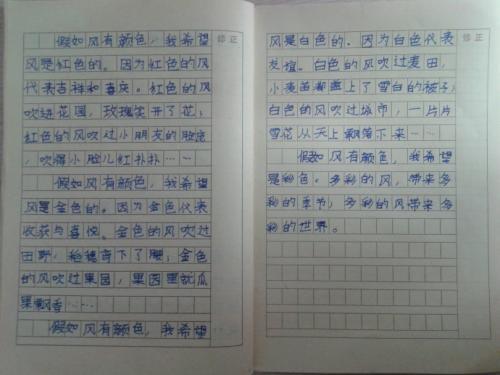 修正
假如风有颜色，我希望
风是红色的。因为红色的风
代表吉祥和喜庆。红色的风
吹进花园，玫瑰笑开了花；
红色的风吹过小朋友的脸庞
，吹得小脸儿红扑扑……
假如风有颜色，我希望
风是金色的。因为金色代表
收获与喜悦。金色的风吹过
田野，稻穗弯下了腰；金色
的风吹过果园，果园里就瓜
果飘香……
假如风有颜色，我希望
修正
风是白色的。因为白色代表
友谊。白色的风吹过麦田，
小麦苗都盖上了雪白的被子；
白色的风吹过城市，一片片
雪花从天上飘落下来…
假如风有颜色，我希望
是彩色。多彩的风，带来多
彩的季节；多彩的风带来多
彩的世界。